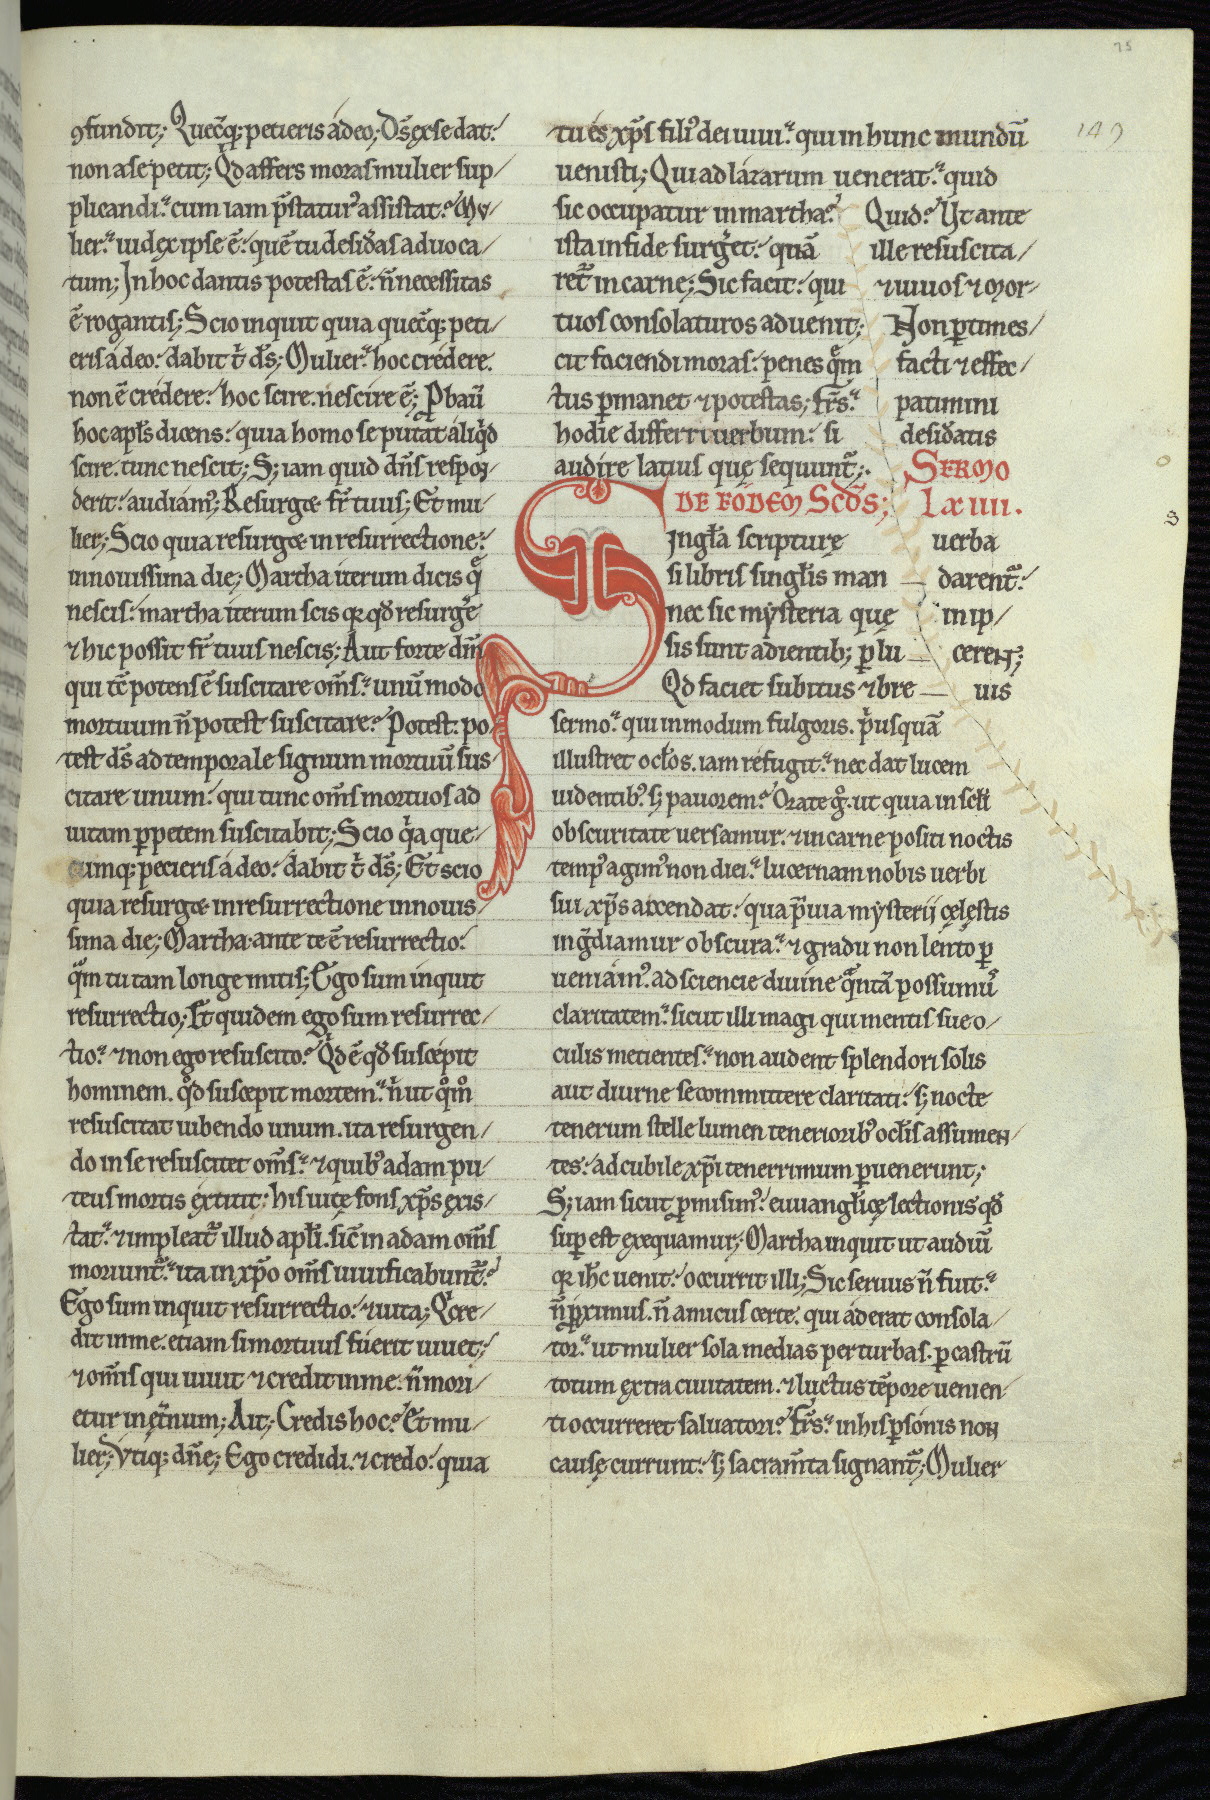 75
149
ꝯfundit; Quecūq; petieris a deo; Ds̄ ex se dat.
non a se petit; Qd̄ affers moras mulier sup/
plicandi. cum iam p̄statur assistat? Mu/
lier. iudex ipse ē. quē tu desid̄as aduoca/
tum; In hoc dantis potestas ē. n̄ necessitas
ē rogantis; Scio inquit quia quecūq; peti/
eris a deo. dabit t̄ ds̄; Mulier. hoc credere.
non ē credere. hoc scire. nescire ē; Pbaū
hoc apl̄s dicens. quia homo se putat aliqd̄
scire. tunc nescit; S; iam quid dn̄s respon
derit. audiam᷒; Resurget fr̄ tuus; Et mu/
lier; Scio quia resurget in resurrectione.
in nouissima die; Martha iterum dicis q̄
nescis. martha iterum scis qr qd̄ resurḡe
⁊ hic possit fr̄ tuus nescis; Aut forte dn̄s
qui tc̄ potens ē suscitare om̄s. unū modo
mortuum n̄ potest suscitare? Potest. po
test ds̄ ad temporale signum mortuū sus/
citare unum. qui tunc om̄s mortuos ad
uitam ꝑpetem suscitabit; Scio qa que/
cumq; pecieris a deo. dabit t̄ ds̄; Et scio
quia resurget in resurrectione in nouis/
sima die; Martha ante te ē resurrectio.
qm̄ tu tam longe mitis; Ego sum inquit
resurrectio; Et quidem ego sum resurrec/
tio. ⁊ non ego resuscito? Qd̄ ē qd̄ suscepit
hominem. qd̄ suscepit mortem. n̄ ut qm̄
resuscitat uibendo unum. ita resurgen/
do in se resuscitet om̄s. ⁊ quib᷒ adam pu/
teus mortis extitit. his uitę fons xp̄s exis/
tat. ⁊ impleat᷑ illud apl̄i. sic̄ in adam om̄s
moriunt᷑. ita in xp̄o om̄s uiuificabunt᷑?
Ego sum inquit resurrectio. ⁊ uita; Q̄ cre/
dit in me. etiam si mortuus fuerit uiuet;
⁊ om̄is qui uiuit ⁊ credit in me. n̄ mori/
etur in ęt̄num; Ait; Credis hoc? Et mu/
lier; Vtiq; dn̄e; Ego credidi. ⁊ credo. quia
tu es xp̄s fili᷒ dei uiui. qui in hunc mundū
uenisti; Qui ad lazarum uenerat. quid
sic occupatur in martha? Quid? Vt ante
ista in fide surḡet. quā ille resuscita/
ret᷑ in carne; Sic facit. qui ⁊ uiuos ⁊ mor/
tuos consolaturos aduenit; Non ꝑtimes/
cit faciendi moras. penes qm̄ facti ⁊ effec/
tus ꝑmanet ⁊ potestas; Fr̄s. patimini
hodie differri uerbum. si desid̄atis
audire latius quę sequunt᷑;. SERMO
DE EODEM SCDS; LXIIII.
Singl̄a scripturę uerba
si libris singl̄is man — darent᷑.
nec sic mysteria quę in ip/
sis sunt adientib; ꝑlu — cerent;
Qd̄ faciet subitus ⁊ bre — uis
sermo. qui in modum fulgoris. p̄usquā
illustret ocl̄os. iam refugit. nec dat lucem
uidentib᷒. s; pauorem? Orate g̊. ut quia in scl̄i
obscuritate uersamur. ⁊ in carne positi noctis
temp᷒ agim᷒ non diei. lucernam nobis uerbi
sui xp̄s accendat. qua p̄uia mysterij cęlestis
ing̃diamur obscura. ⁊ gradu non lento ꝑ
ueniam᷒. ad sciencie diuine qn̄tā possumū
claritatem. sicut illi magi qui mentis sue o/
culis metientes. non audent splendori solis
aut diurne se committere claritati. s; nocte
tenerum stelle lumen tenerioribus ocl̄is assumen/
tes. ad cubile xp̄i tenerrimum ꝑuenerunt;
S; iam sicut ꝓmisim᷒. euuangl̄icę lectionis qd̄
suꝑ est exequamur; Martha inquit ut audiū
qr ih̄c uenit. occurrit illi; Sic seruus n̄ fuit.
n̄ ꝓximus. n̄ amicus certe. qui aderat consola/
tor. ut mulier sola medias per turbas. ꝑ castrū
totum extra ciuitatem. ⁊ luctus tēpore uenien/
ti occurreret saluatori? Fr̄s. in his ꝑsonis non
causę currunt. s; sacram̄ta signant᷑; Mulier